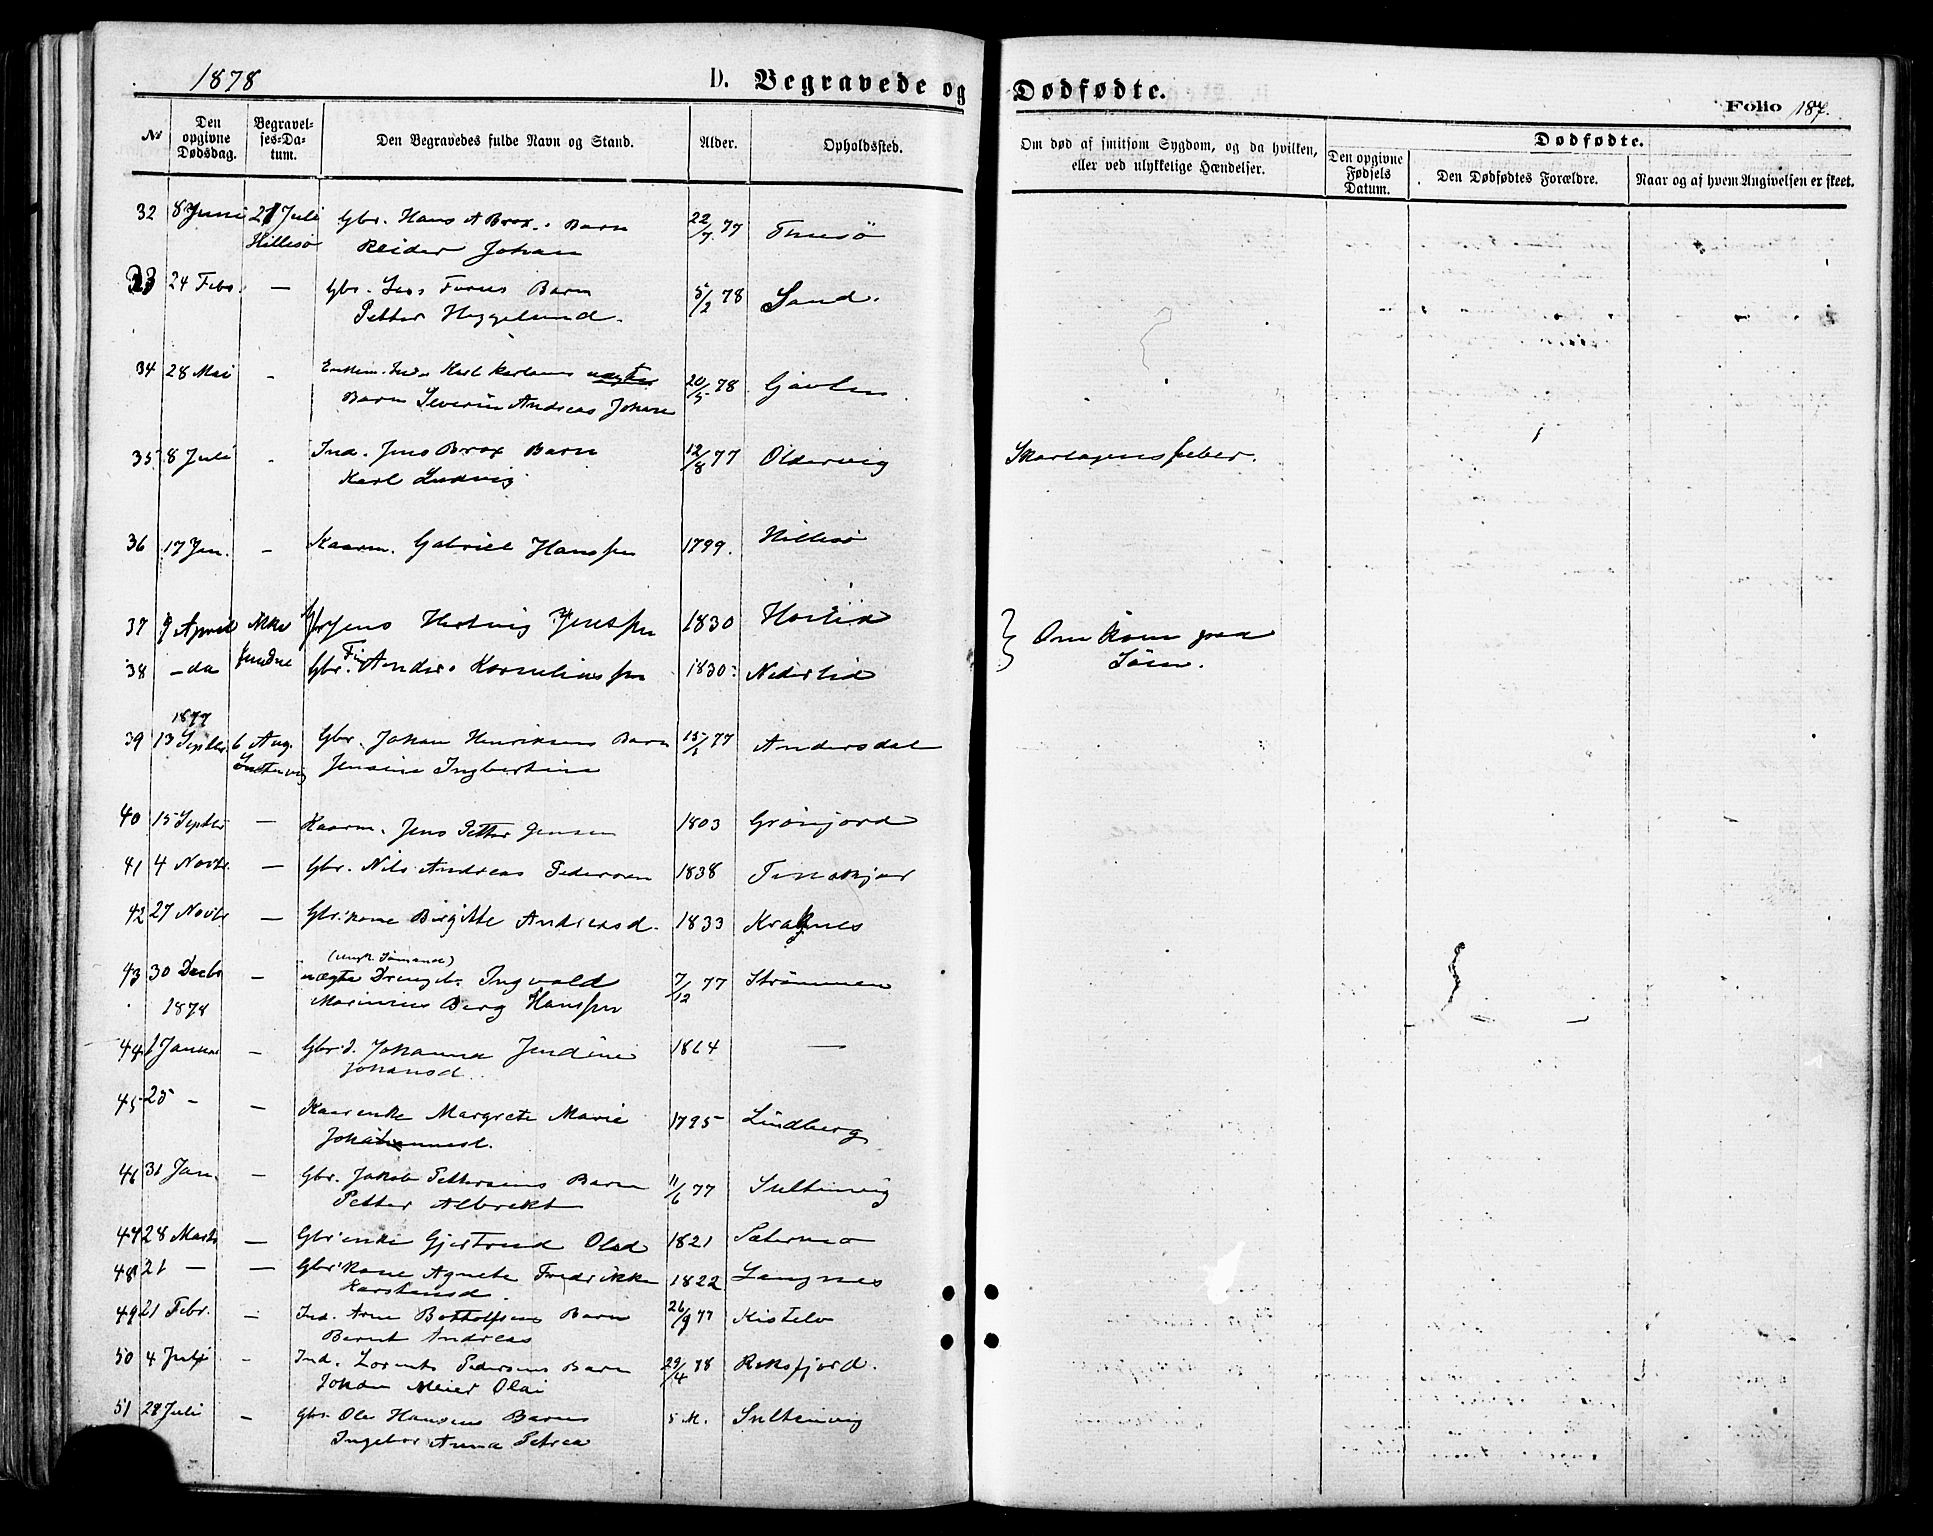 1878
D. Begravede og Dødfødte.
Folio 187.
No
Den opgivne Dødsdag.
Begravel-ses-Da-tum.
Den Begravedes fulde Navn og Stand.
Alder.
Opholdssted.
Om død af smitsom Sygdom, og da hvilken, eller ved ulykkelige Hændelser.
Dødfødte.
Den opgivne Fødsels Datum.
Den Dødfødtes Forældre.
Naar og af hvem Angivelsen er skeet.
32 8 Juni 21 Juli Gbr. Hans A Brox. Barn 22/7 77
Hillesø Reider Johan
33 24 Febr. — Gbr. Barn 5/2 78 Sand.
Petter Heggelund.
34 28 Mai - Karl uægte 20/5 78 Gjøvlen
Barn Severin Andreas Johan
35 8 Juli - Ind. Jens Brox Barn 12/8 77 Oldervig Skarlagensfeber.
Karl Ludvig
36 17 Jan. - Kaarm. Gabriel Hanssen 1799. Hillesø
37 9 April Ikke Jens Hertvig Jenssen 1830 Om kom paa
38 - do fundne Gbr. Anders Korneliussen 1830 Nederlid Søen.
1877
39 13 Septbr 6 Aug. Gbr. Johan Henriksens Barn 77 Andersdal
Jensine Ingbertine
40 15 Septbr — Kaarm. Jens Petter Jensen 1803 Grønjord
41 4 Novbr. — Gbr. Nils Andreas Pedersen 1838
42 27 Novbr — Gbr. kone Birgitte Andreasd. 1833 Kraknes
43 30 Decbr — uægte Drengeb. Ingvald 7/12 77 Strømmen
1878 Marinius Berg Hanssen
44 Januar — Gbr. d. Johanna Jendine 1864 —
Johansd.
45 25 - — Kaarenke Margrete Marie 1795 Lindberg
Johannesd.
46 31 Jan. — Gbr. Jakob Pettersens Barn 11/6 77 Sultenvig
Petter Albrekt
47 28 Marts — Gbr enke Gjertrud Olsd 1821
48 21 — — Gbr kone Agnete Fredrikke 1822 Langnes
Karstensd.
49 21 Febr. — Ind. Arne Bottolfsens Barn 26/9 77 Kistelv
Bernt Andreas
50 4 Juli - Ind. Lorents Pedersens Barn 29/4 78
Johan Meier Olai
51 28 Juli - Gbr. Ole Hansens Barn 5 M. Sultenvig
Ingebor Anna Petrea